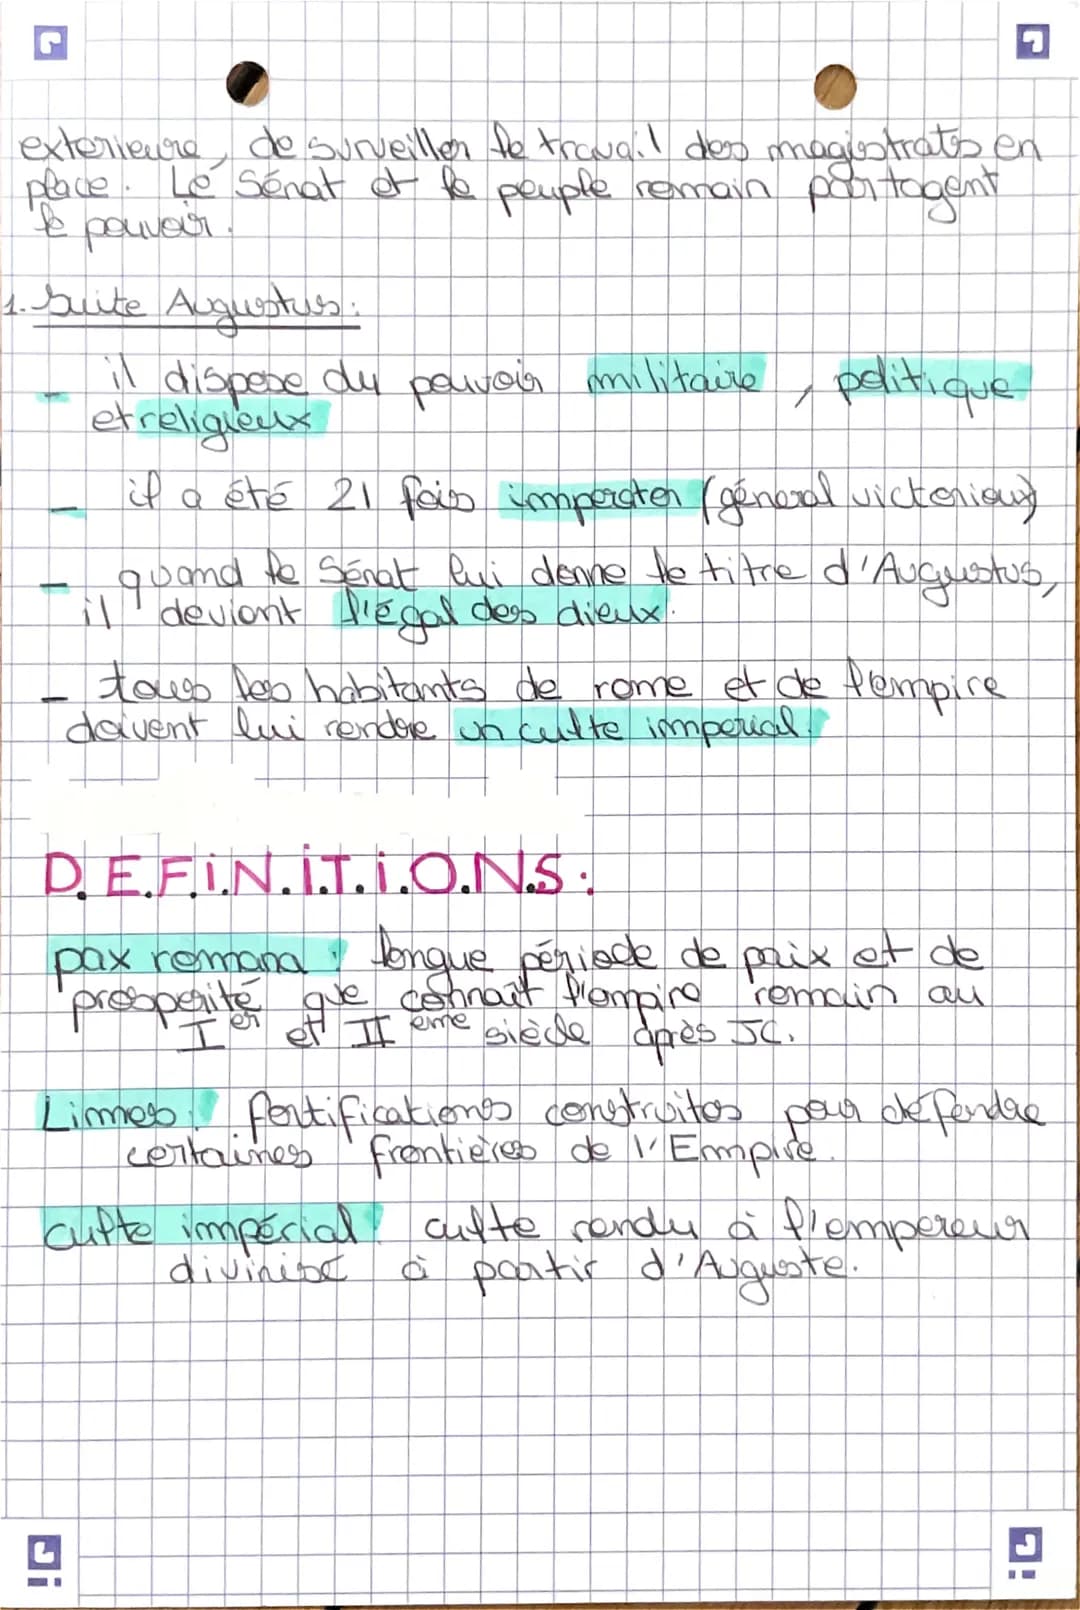 exterieure, de surveiller le travail des magistrats en
place. Le Sénat et le peuple romain partagent
le pouvoir.
1. Suite Augustus:
- il dispose du pouvoir militaire, politique
et religieux
- il a été 21 fois imperator (géneral victorieux)
- quand le Sénat lui donne le titre d'Augustus,
il devient l'égal des dieux.
- tous les habitants de rome et de l'empire
doivent lui rendre un culte imperial.
D.E.F.I.N.I.T.I.O.N.S:
pax romana: longue période de paix et de
prosperité que connaît l'empire romain au
Ier et IIème siècle après JC.
Limes: fortifications construites pour défendre
certaines frontières de l'Empire.
culte impérial: culte rendu à l'empereur
divinisé à partir d'Auguste.